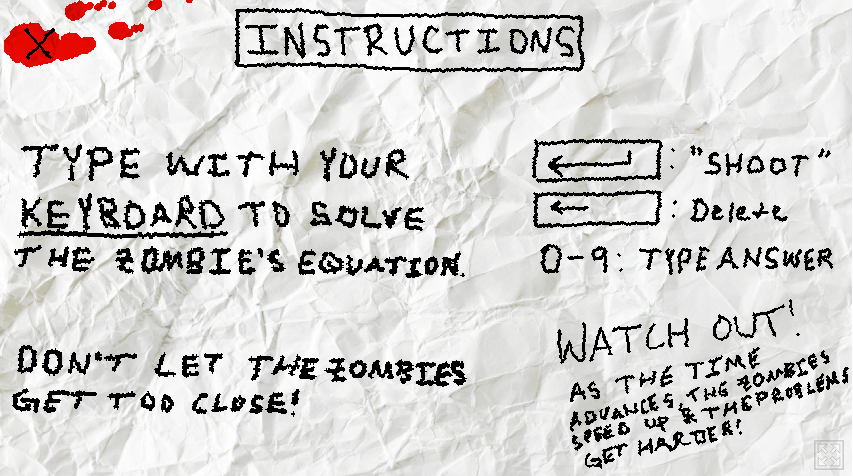 INSTRUCTIONS
TYPE WITH YOUR
KEYBOARD TO SOLVE
THE ZOMBIE'S EQUATION.
DON'T LET THE ZOMBIES
GET TOO CLOSE!
: "SHOOT"
: Delete
0-9: TYPE ANSWER
WATCH OUT!
AS THE TIME
ADVANCES, THE ZOMBIES
SPEED UP & THE PROBLEMS
GET HARDER!